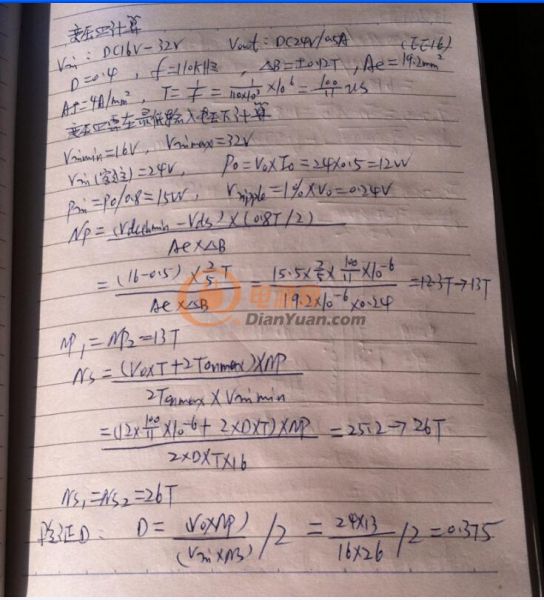 变压器计算
Vin: DC16V-32V Vout: DC24V/0.5A (EE16)
D=0.4, f=110KHz, ΔB=±0.12T, Ae=19.2mm²
A=4A/mm², T=1/f=1/110×10³×10⁶=100/11 us
变压器需在最低输入电压下计算
Vinmin=16V, Vinmax=32V
Vin(额定)=24V, Po=Vo×Io=24×0.5=12W
Pin=Po/0.8=15W, Vripple=1%×Vo=0.24V
Np=(Vdcinmin-Vds)×(0.8T/2)/Ae×ΔB
=(16-0.5)×2/5T/Ae×ΔB=15.5×2/5×100/11×10⁻⁶/19.2×10⁻⁶×0.24=12.3T→13T
电源网
DianYuan.com
NP₁=NP₂=13T
Ns=(Vo×T+2Tonmax)×NP/2Tonmax×Vinmin
=(12×100/11×10⁻⁶+2×D×T)×NP/2×D×T×16=25.2→26T
Ns₁=Ns₂=26T
验证D: D=(Vo×NP)/(Vin×Ns)/2=24×13/16×26/2=0.375